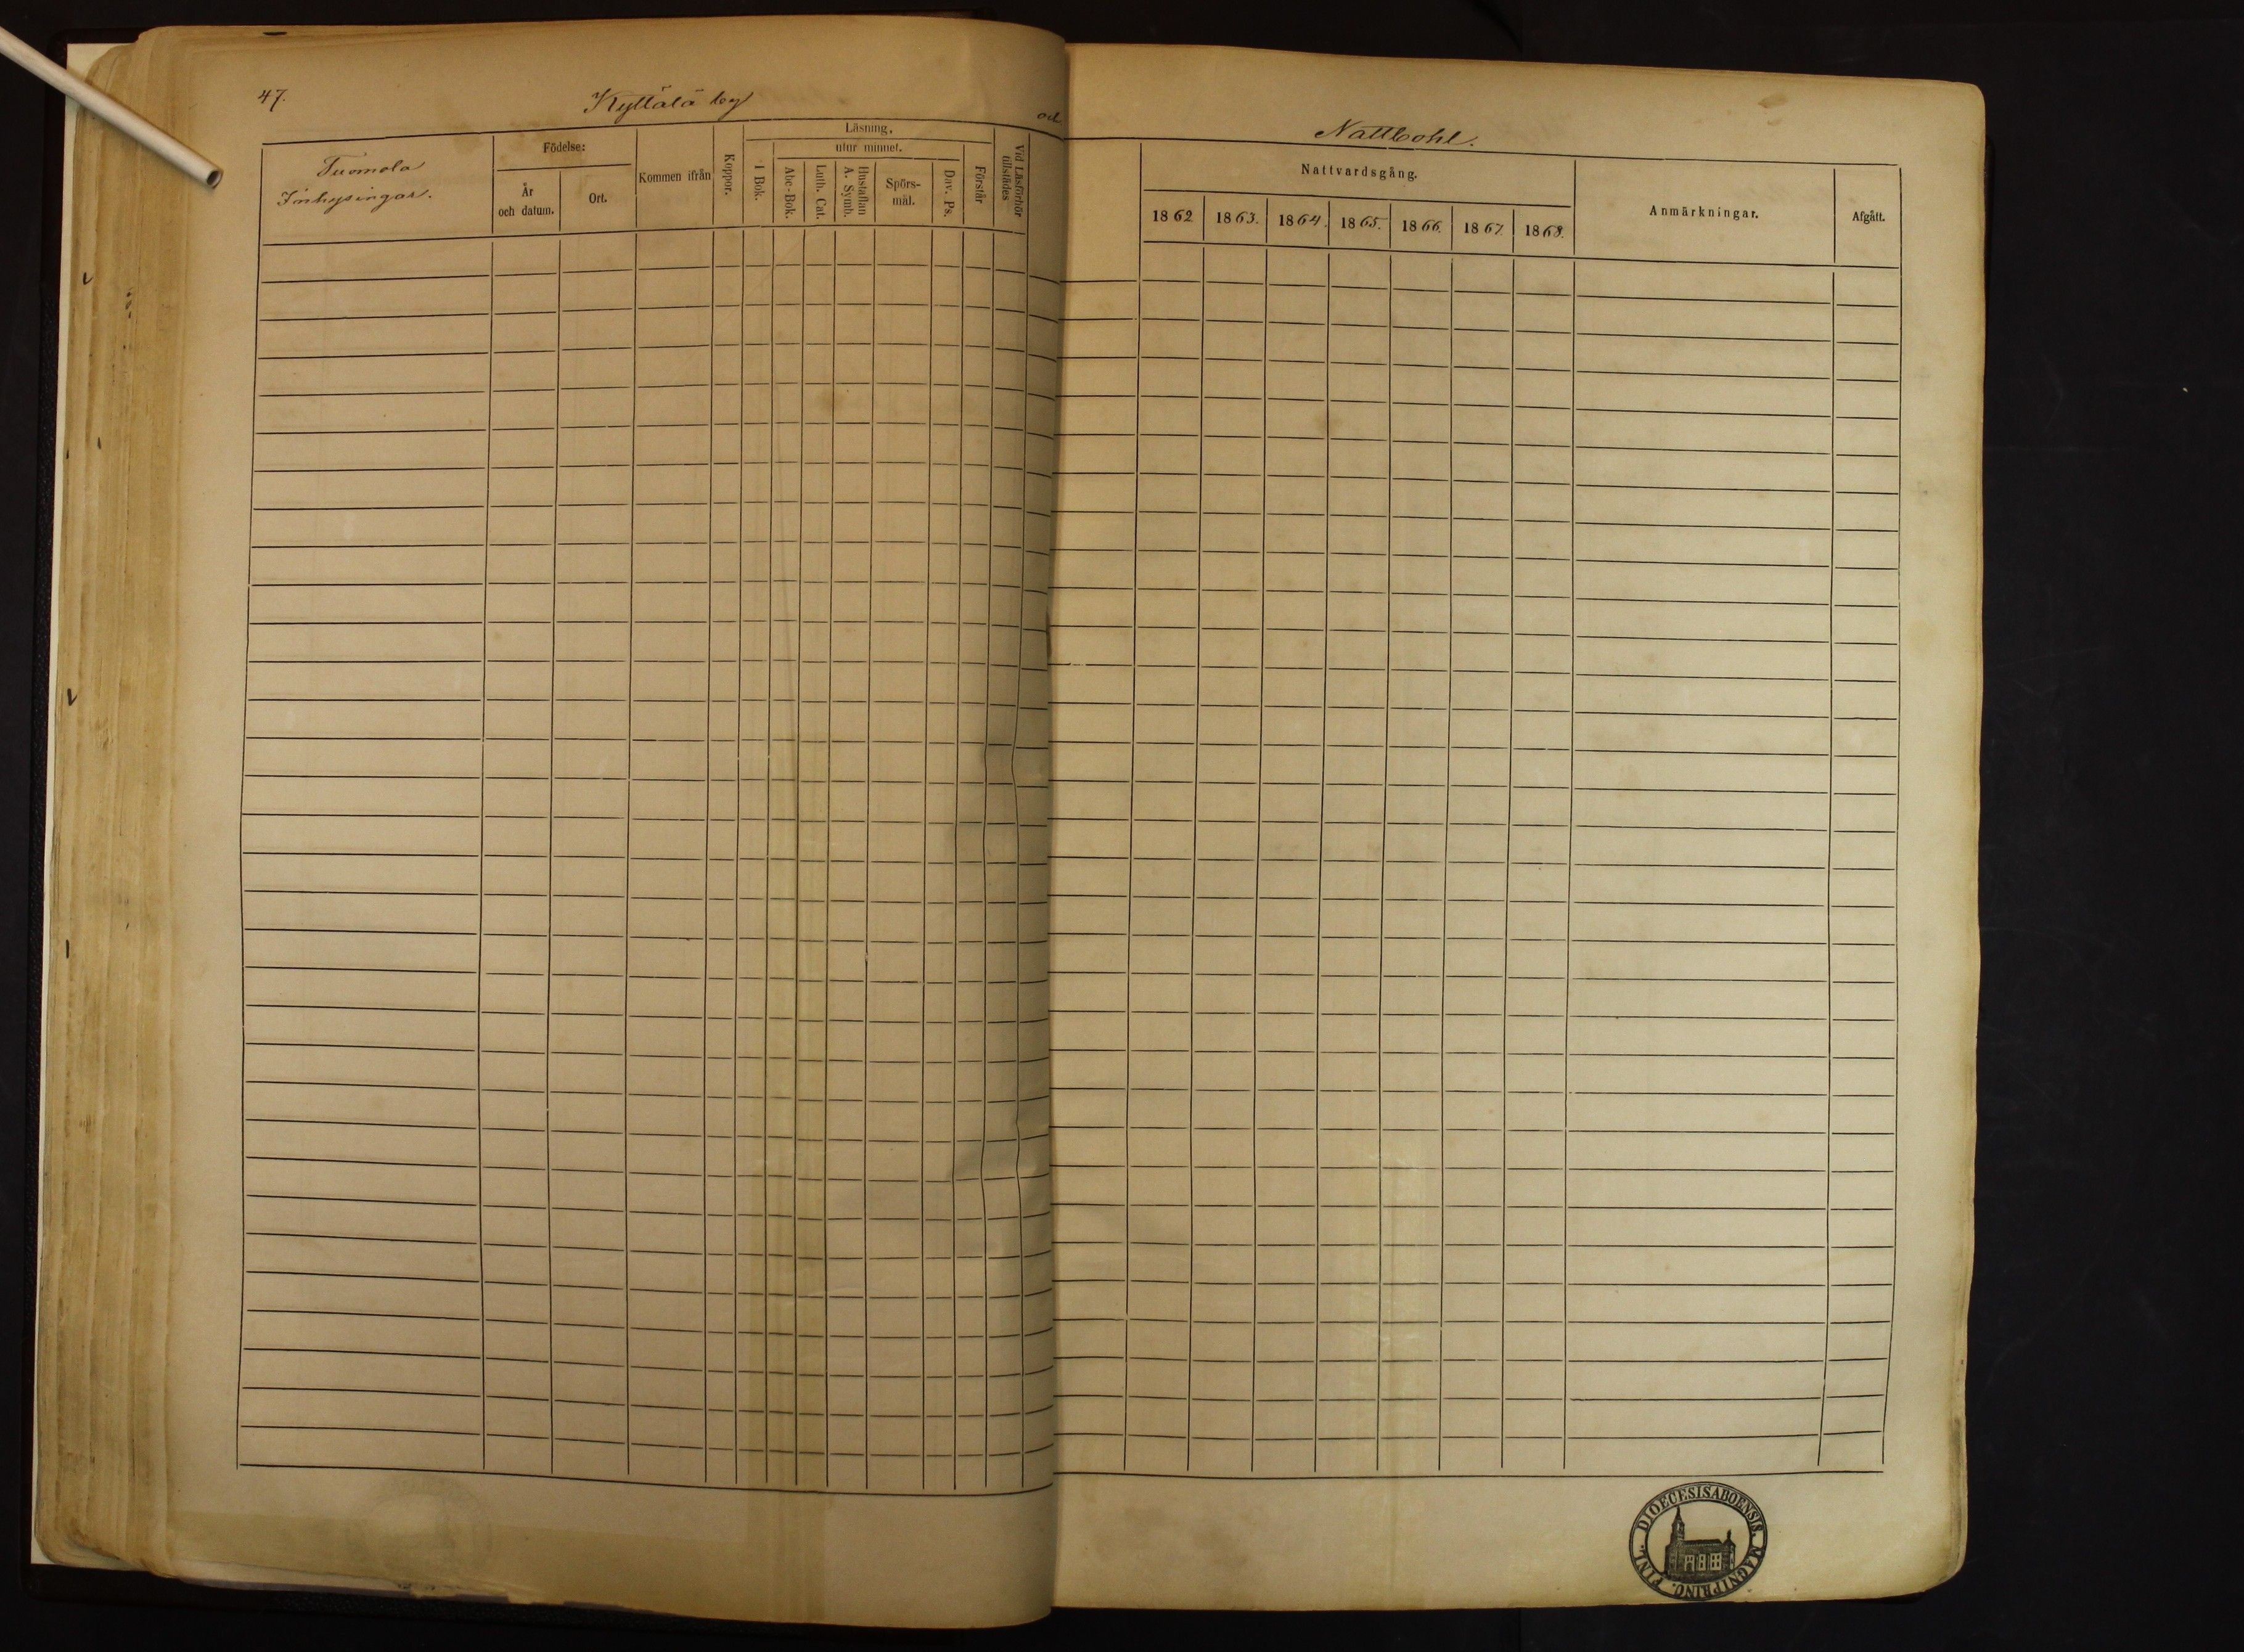 47.
Kyttälä by
och
Nattbohl.
Tuomola
Inhysingar.
Födelse:
År
och datum.
Ort.
Kommen ifrån
Koppor.
Läsning.
I Bok.
utur minnet.
Abc-Bok.
Luth. Cat.
Hustaflan
A. Symb.
Spörs-
mål.
Dav. Ps.
Förstår
Vid Läsförhör
tillstädes
Nattvardsgång.
1862
1863.
1864.
1865.
1866.
1867.
1868.
Anmärkningar.
Afgått.
DIOECESIS ABOENSIS. MAGNI PRINC. FINL.